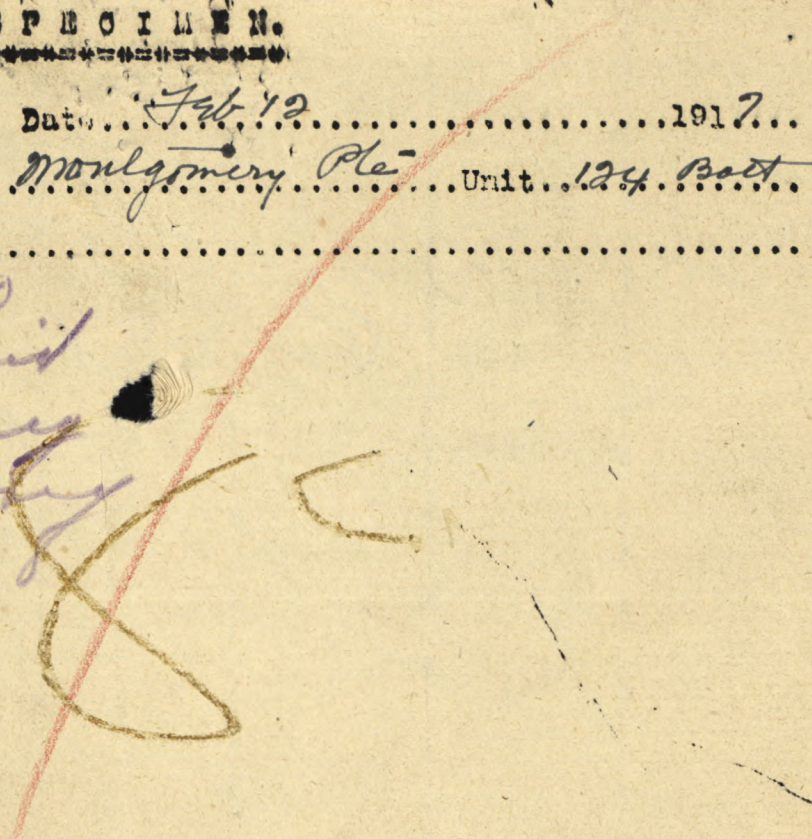 SPECIMEN.
Date...Feb 12...1917...
Montgomery Pte...Unit...124 Batt